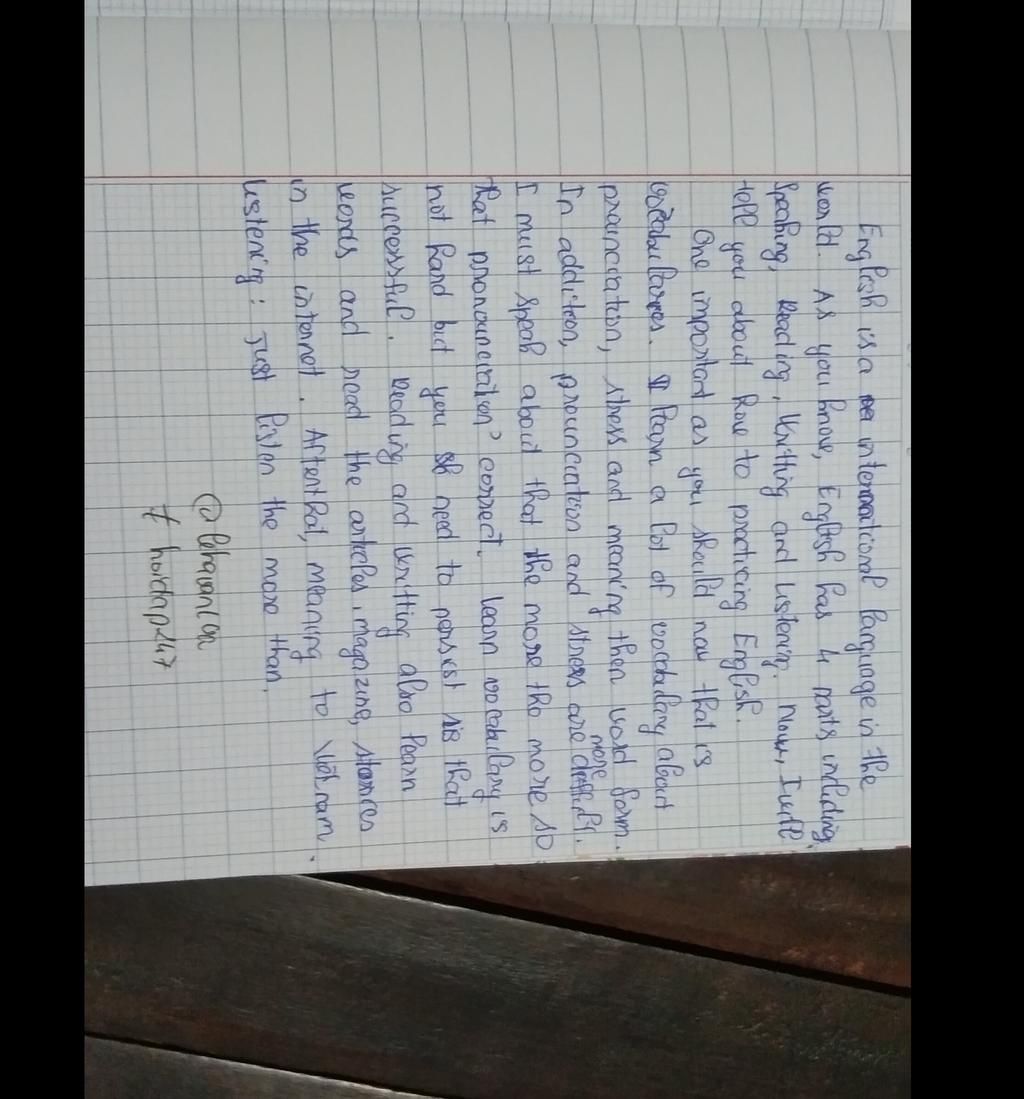 English is a international language in the
world. As you know, English has 4 parts including
speaking, Reading, Writting and Listening. Now, I will
tell you about how to practicing English.
One important as you should now that is
vocabularies. I learn a lot of vocabulary about
prounciration, stress and meaning then word form.
In addition, prounciation and stress are more diffily.
I must speak about that the more the more so
that pronounciation correct. learn vocabulary is
not hard but you need to persist is that
successful. Reading and Writting also learn
words and read the articles, magazine, stories
in the internet. Afterthat, meaning to Việt nam.
Listening: Just listen the more than.
@lehavanlan
≠ hoidap247